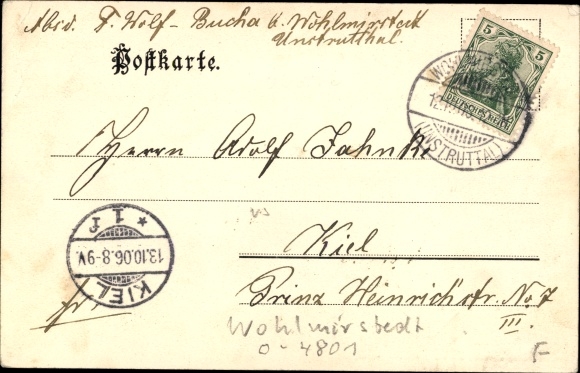 Absd. F. Wolf - Bucha b. Wohlmirsteck
Unstrutthal.
Postkarte.
5 5
DEUTSCHES REICH
(UNSTRUTTAL)
Herrn Adolf Jahnke
Kiel
Prinz Heinrichstr. No. 7
III.
* 1 f
13.10.06.8-9V.
KIEL
Wohlmirstedt
O-4801
F